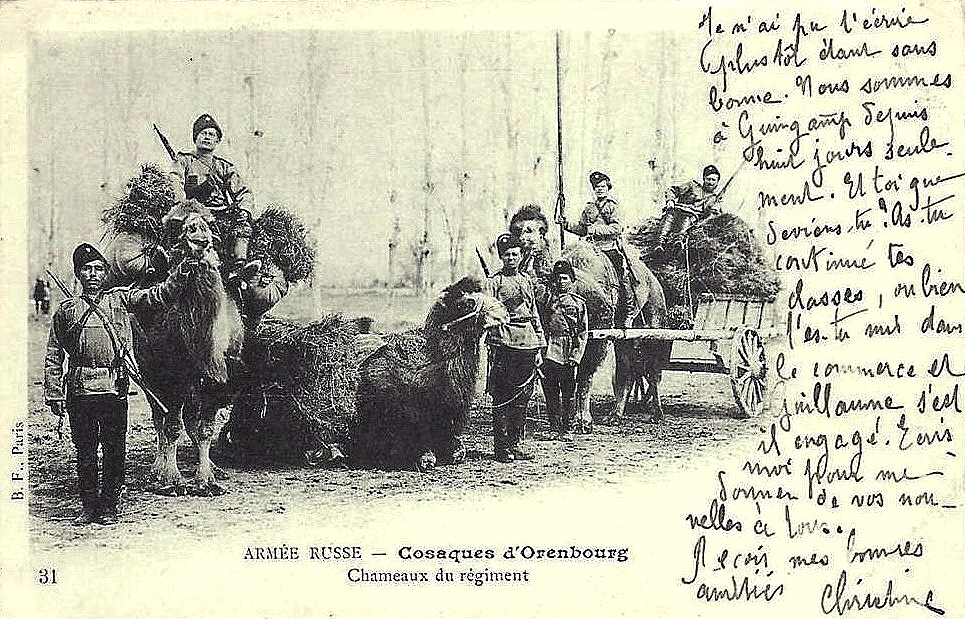 Je n'ai pu t'écrire
plus tôt étant sans
bonne. Nous sommes
à Guingamp depuis
huit jours seule-
ment. Et toi que
deviens-tu? As-tu
continué tes
classes, ou bien
t'es-tu mis dans
le commerce et
Guillaume s'est
il engagé. Ecris
moi pour me
donner de vos nou-
velles à tous.
Reçois mes bonnes
amitiés Christine
B. F., Paris
ARMÉE RUSSE — Cosaques d'Orenbourg
31 Chameaux du régiment